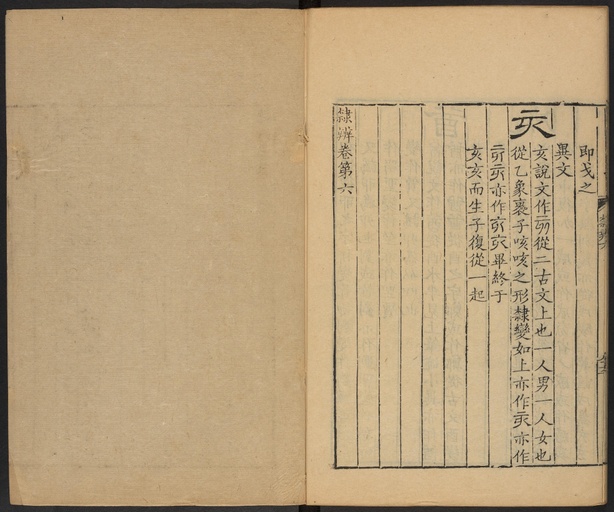 即戈之
異文
亥
亥說文作𠀅從二古文上也一人男一人女也
從乙象褱子咳咳之形隸變如上亦作亥亦作
亦作亥亥畢終于
亥亥而生子復從一起
隸辨卷第六